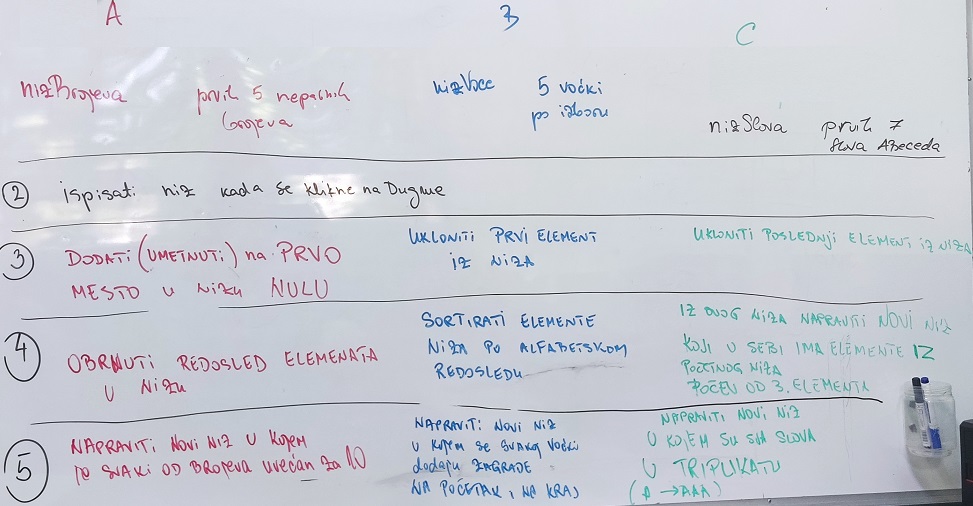 A
B
C
nizBrojeva
prvih 5 neparnih
brojeva
nizVoce
5 voćki
po izboru
nizSlova
prvih 7
slova Abeceda
2
ispisati niz kada se klikne na Dugme
3
DODATI (UMETNUTI) na PRVO
MESTO U NIZU NULU
UKLONITI PRVI ELEMENT
IZ NIZA
UKLONITI POSLEDNJI ELEMENT IZ NIZA
4
OBRNUTI REDOSLED ELEMENATA
U NIZU
SORTIRATI ELEMENTE
NIZA PO ALFABETSKOM
REDOSLEDU
IZ OVOG NIZA NAPRAVITI NOVI NIZ
KOJI U SEBI IMA ELEMENTE IZ
POČETNOG NIZA
POČEV OD 3. ELEMENTA
5
NAPRAVITI NOVI NIZ U KOJEM
je SVAKI OD BROJEVA uvećan za 10
NAPRAVITI NOVI NIZ
U KOJEM SE SVAKOJ VOĆKI
dodaju ZAGRADE
NA POČETAK, NA KRAJ
NAPRAVITI NOVI NIZ
U KOJEM SU SVA SLOVA
U TRIPLIKATU
(A → AAA)